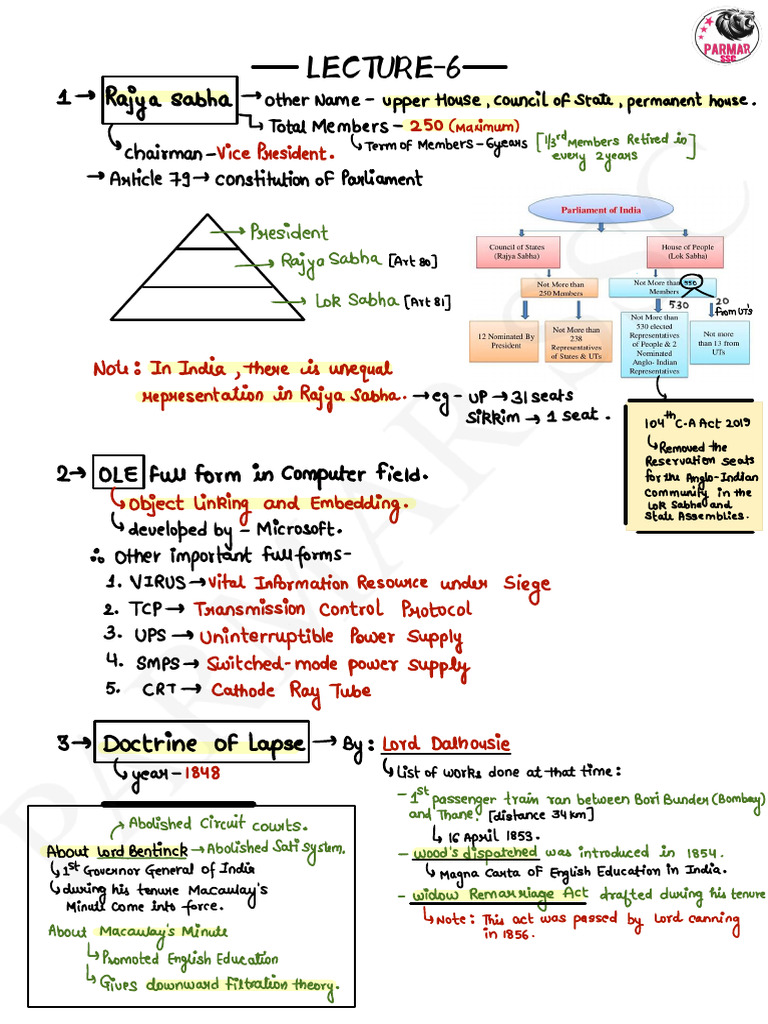 PARMAR
SSC
LECTURE-6
1 → Rajya Sabha → other Name - upper House, council of State, permanent house.
→ Total Members - 250 (Maximum)
→ Term of Members - 6years [1/3rd Members Retired in
every 2years]
chairman - Vice President.
→ Article 79 → constitution of Parliament
→ President
→ Rajya Sabha [Art 80]
→ Lok Sabha [Art 81]
Parliament of India
Council of States
(Rajya Sabha)
House of People
(Lok Sabha)
Not More than
250 Members
Not More than 550
Members
530
20
from UT's
12 Nominated By
President
Not More than
238
Representatives
of States & UTs
Not More than
530 elected
Representatives
of People & 2
Nominated
Anglo- Indian
Representatives
Not more
than 13 from
UTs
Note: In India, there is unequal
representation in Rajya Sabha. → eg - UP → 31 seats
Sikkim → 1 seat.
104th C-A Act 2019
→ Removed the
Reservation seats
for the Anglo-Indian
Community in the
Lok Sabha and
State Assemblies.
2 → OLE full form in Computer field.
→ Object Linking and Embedding.
→ developed by - Microsoft.
∴ Other important full forms-
1. VIRUS → Vital Information Resource under Siege
2. TCP → Transmission Control Protocol
3. UPS → Uninterruptible Power Supply
4. SMPS → Switched-mode power supply
5. CRT → Cathode Ray Tube
3 → Doctrine of Lapse → By: Lord Dalhousie
→ year - 1848
→ List of works done at that time:
- 1st passenger train ran between Bori Bunder (Bombay)
and Thane. [distance 34km]
→ 16 April 1853.
- wood's dispatched was introduced in 1854.
→ Magna Carta of English Education in India.
- widow Remarriage Act drafted during his tenure
→ Note: This act was passed by Lord canning
in 1856.
→ Abolished Circuit courts.
About Lord Bentinck → Abolished Sati system.
→ 1st Governor General of India
→ during his tenure Macaulay's
Minute come into force.
About Macaulay's Minute
→ Promoted English Education
→ Gives downward filtration theory.
PARMAR SSC